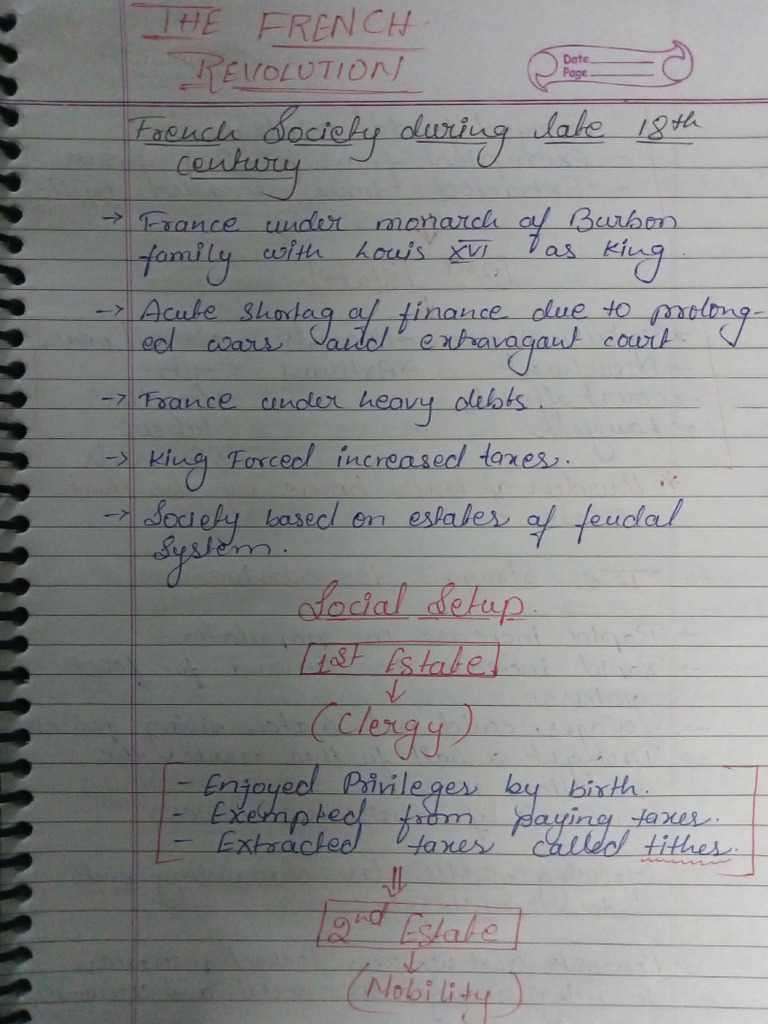 THE FRENCH
REVOLUTION
Date
Page
French Society during late 18th
century
→ France under monarch of Burbon
family with Louis XVI as King.
→ Acute shortag of finance due to prolong-
ed wars and extravagant court.
→ France under heavy debts.
→ King Forced increased taxes.
→ Society based on estates of feudal
system.
Social Setup.
1st Estate
↓
(Clergy)
- Enjoyed Privileges by birth.
- Exempted from paying taxes.
- Extracted taxes called tithes.
⇓
2nd Estate
↓
(Nobility)